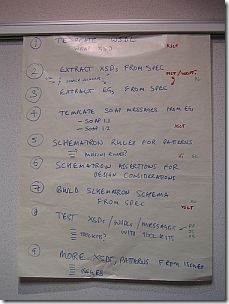 ① TEMPLATE WSDL
WRAP XSD?
XSLT
② EXTRACT XSDs FROM SPEC
XSLT /
③ EXTRACT EGs FROM SPEC
④ TEMPLATE SOAP MESSAGES FROM EGs
- SOAP 1.1
- SOAP 1.2
XSLT
⑤ SCHEMATRON RULES FOR PATTERNS
⑥ SCHEMATRON ASSERTIONS FOR
DESIGN CONSIDERATIONS
⑦ BUILD SCHEMATRON SCHEMA
FROM SPEC
XSLT
⑧ TEST XSDs/WSDLs/MESSAGES
WITH TOOLKITS
TOOLKITS?
⑨ MORE XSDs/PATTERNS FROM ISSUES
ISSUES